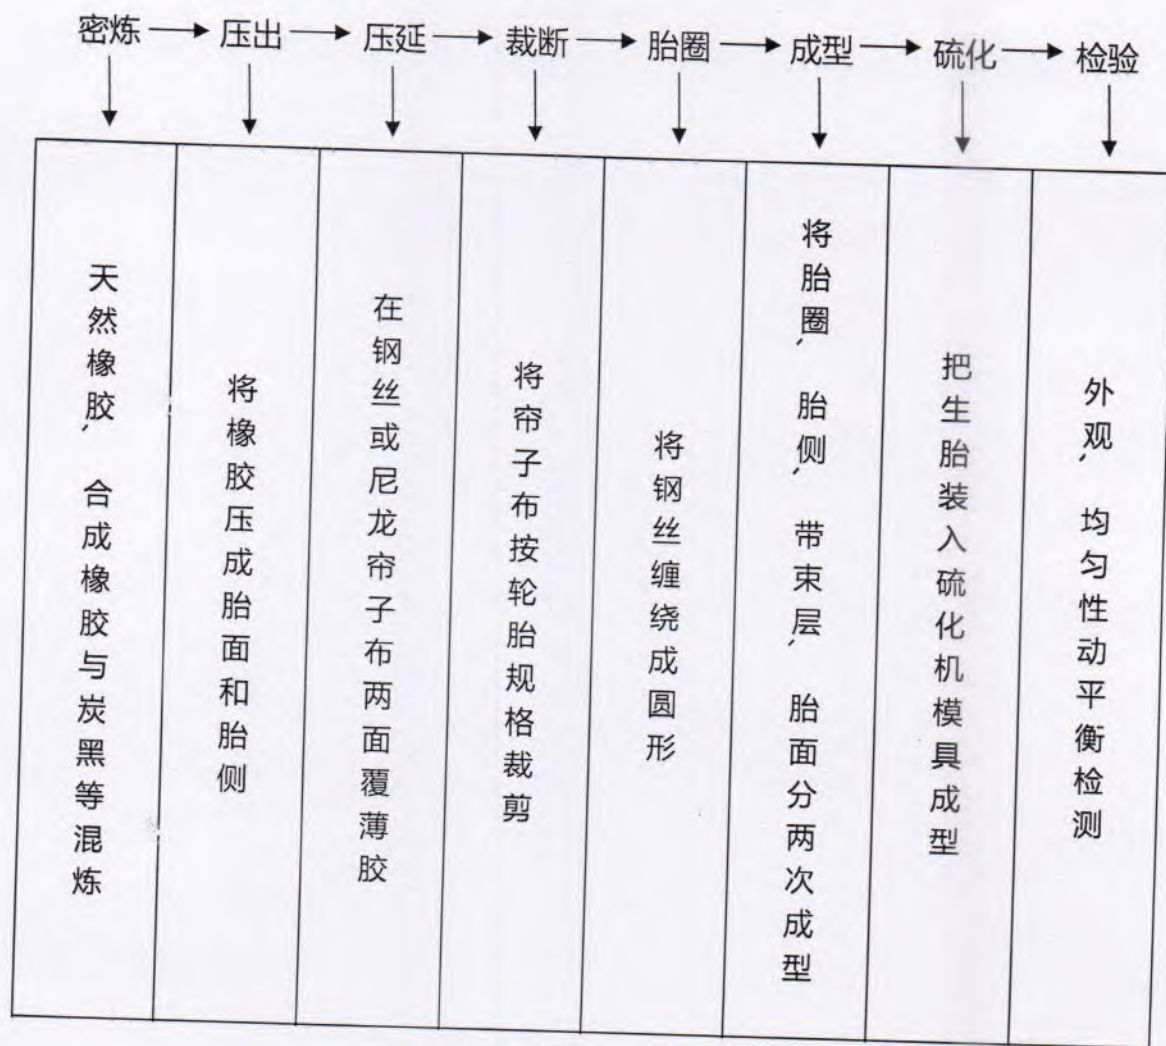 密炼 → 压出 → 压延 → 裁断 → 胎圈 → 成型 → 硫化 → 检验
天然橡胶、合成橡胶与炭黑等混炼
将橡胶压成胎面和胎侧
在钢丝或尼龙帘子布两面覆薄胶
将帘子布按轮胎规格裁剪
将钢丝缠绕成圆形
将胎圈、胎侧、带束层、胎面分两次成型
把生胎装入硫化机模具成型
外观、均匀性动平衡检测